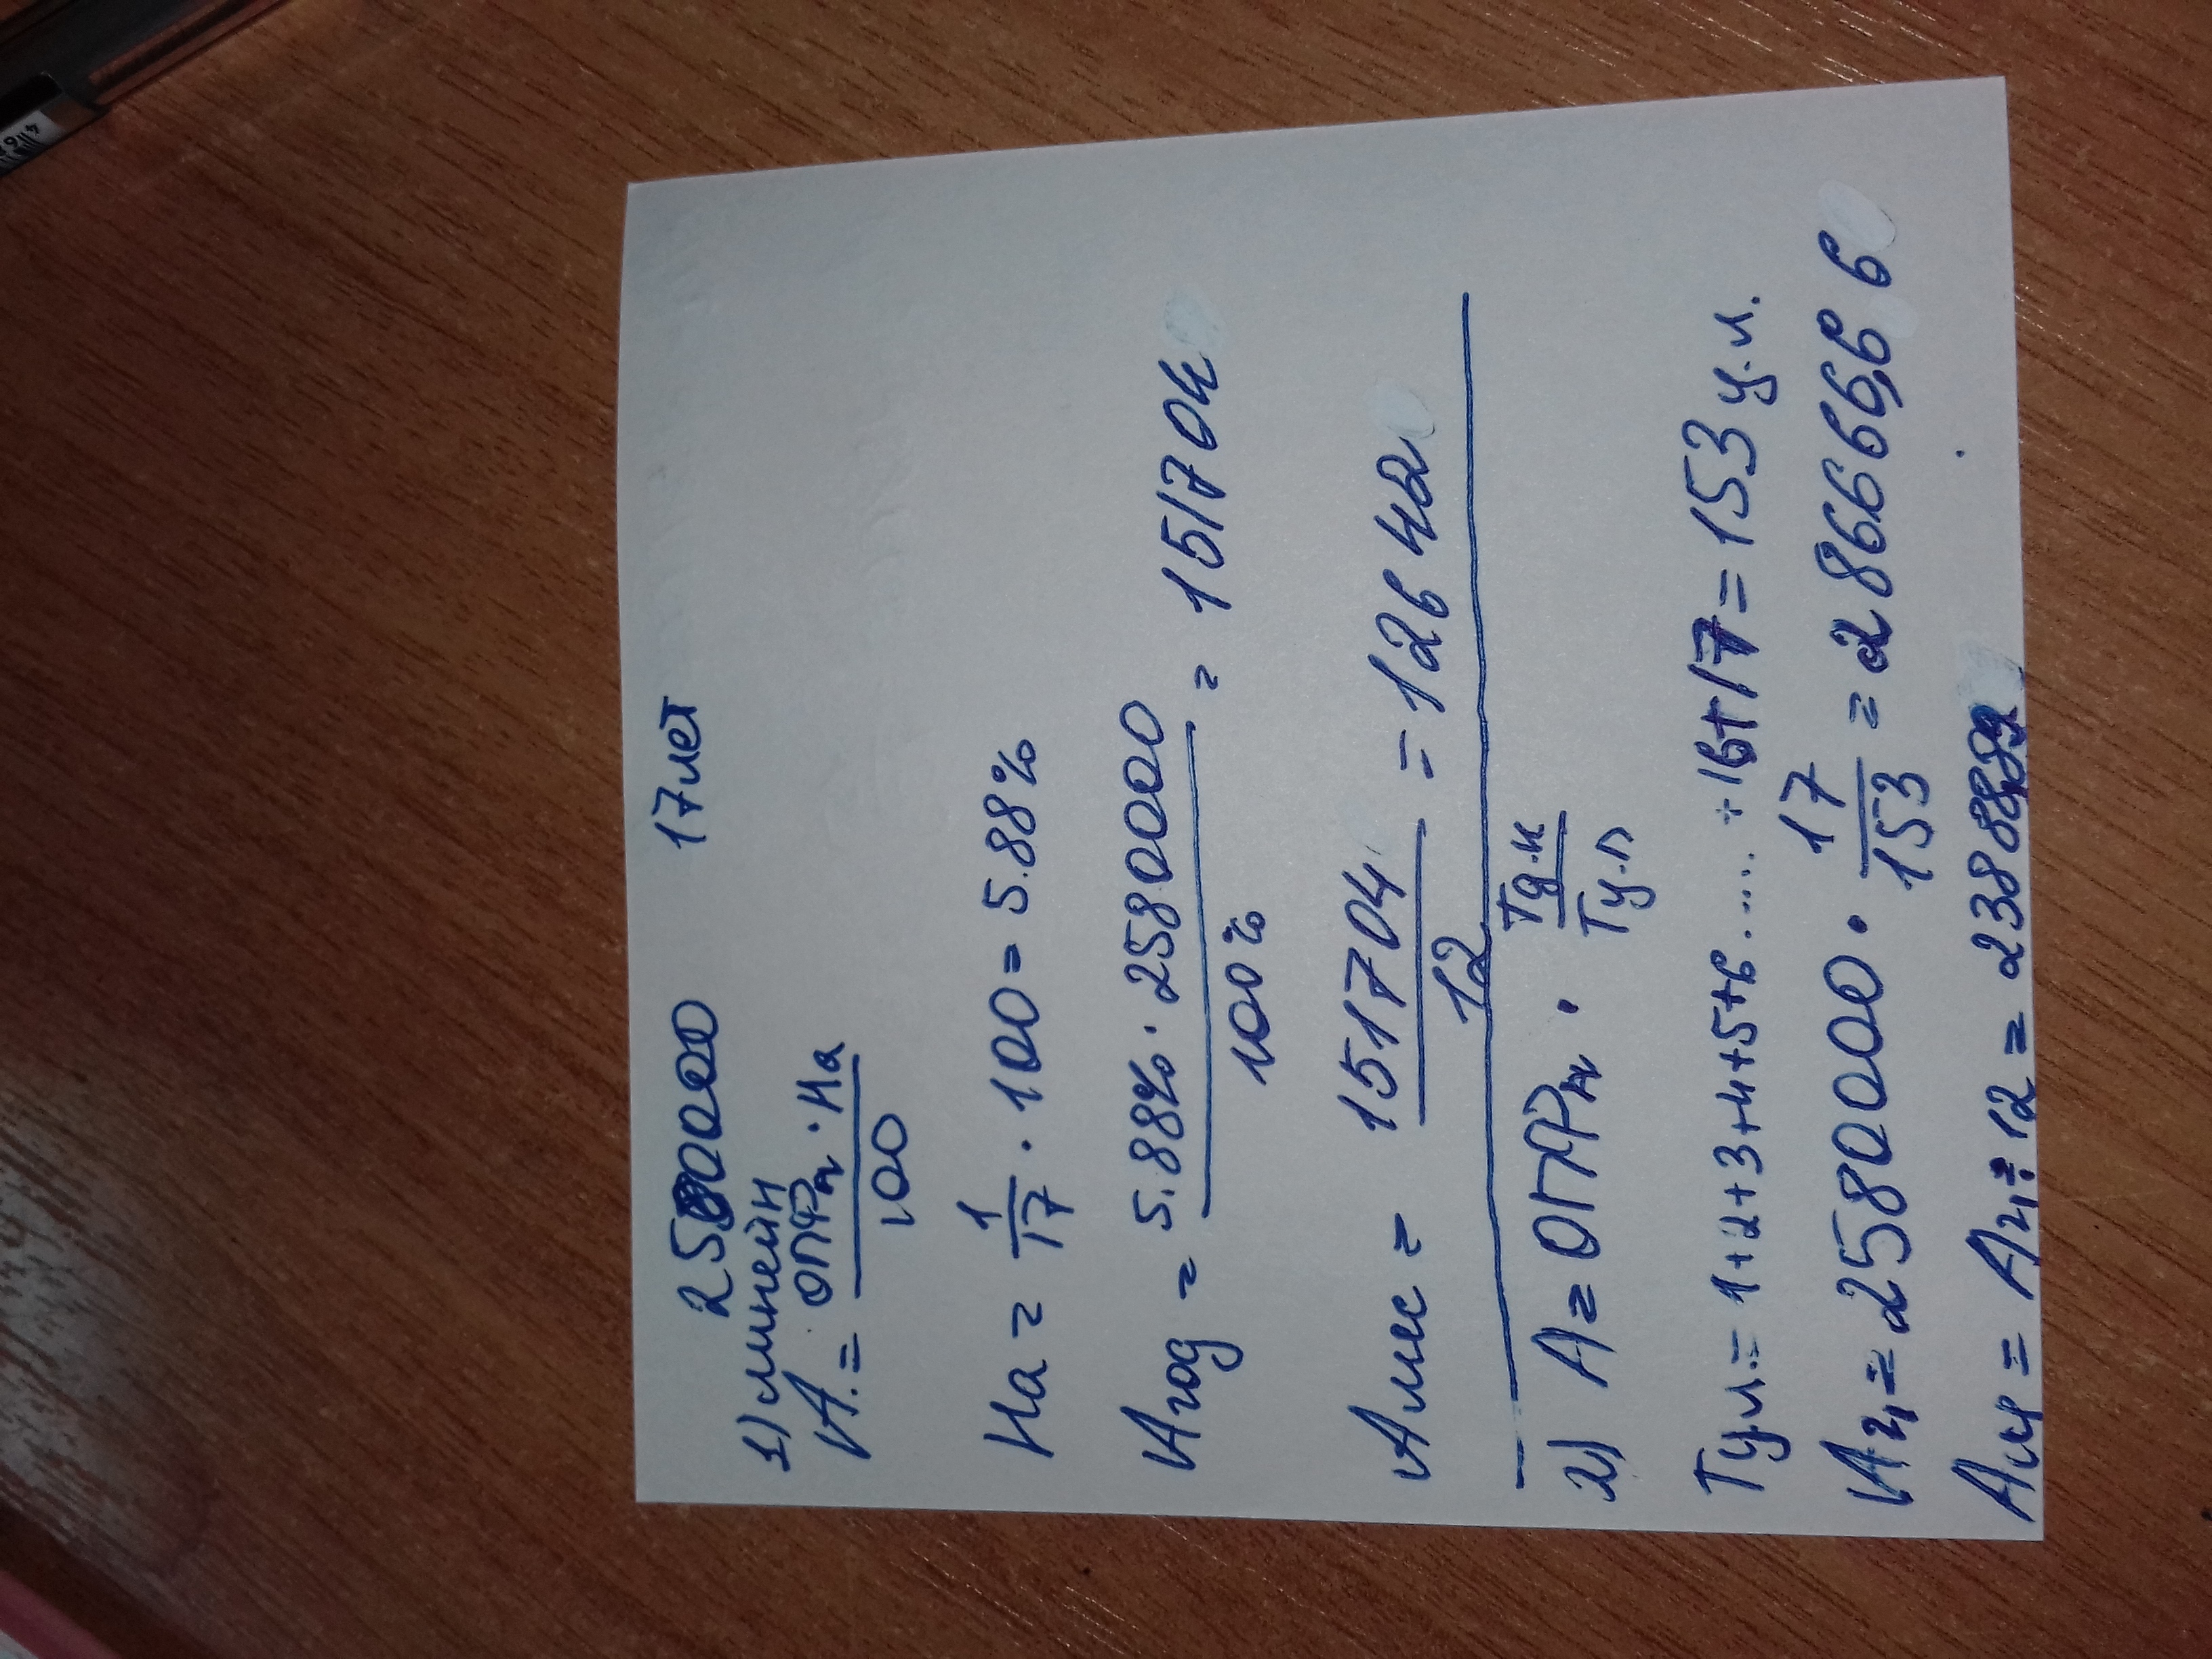 2580000 17 лет
1) линейн
А.= ОПФп · На / 100
На = 1/17 · 100 = 5.88%
Агод = 5.88% · 2580000 / 100% = 151704
Амес = 151704 / 12 = 12642
2) А = ОПФп · Ту.и / Ту.п
Ту.и. = 1+2+3+4+5+6..... ÷16+17 = 153 у.и.
Аг1 = 2580000 · 17/153 = 286666,66
Ам = Аг1 ÷ 12 = 23888,89